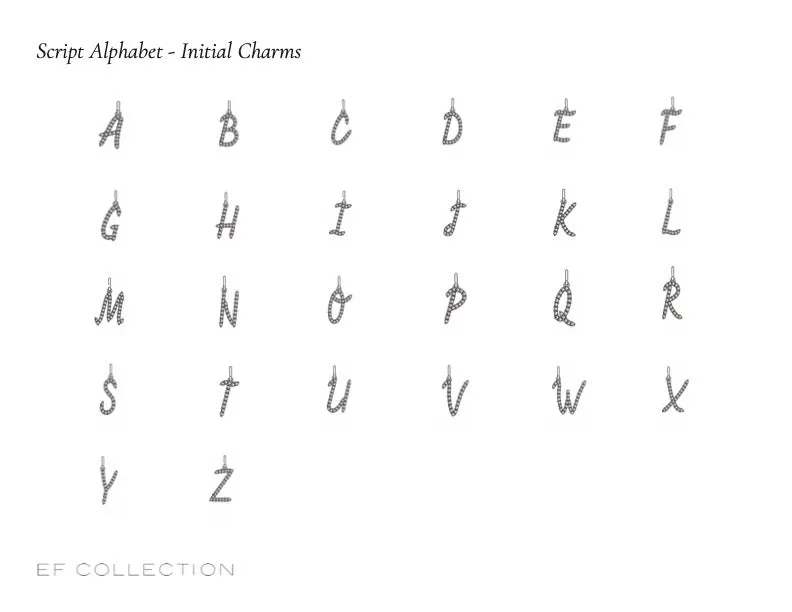 Script Alphabet - Initial Charms
A B C D E F
G H I J K L
M N O P Q R
S T U V W X
Y Z
EF COLLECTION